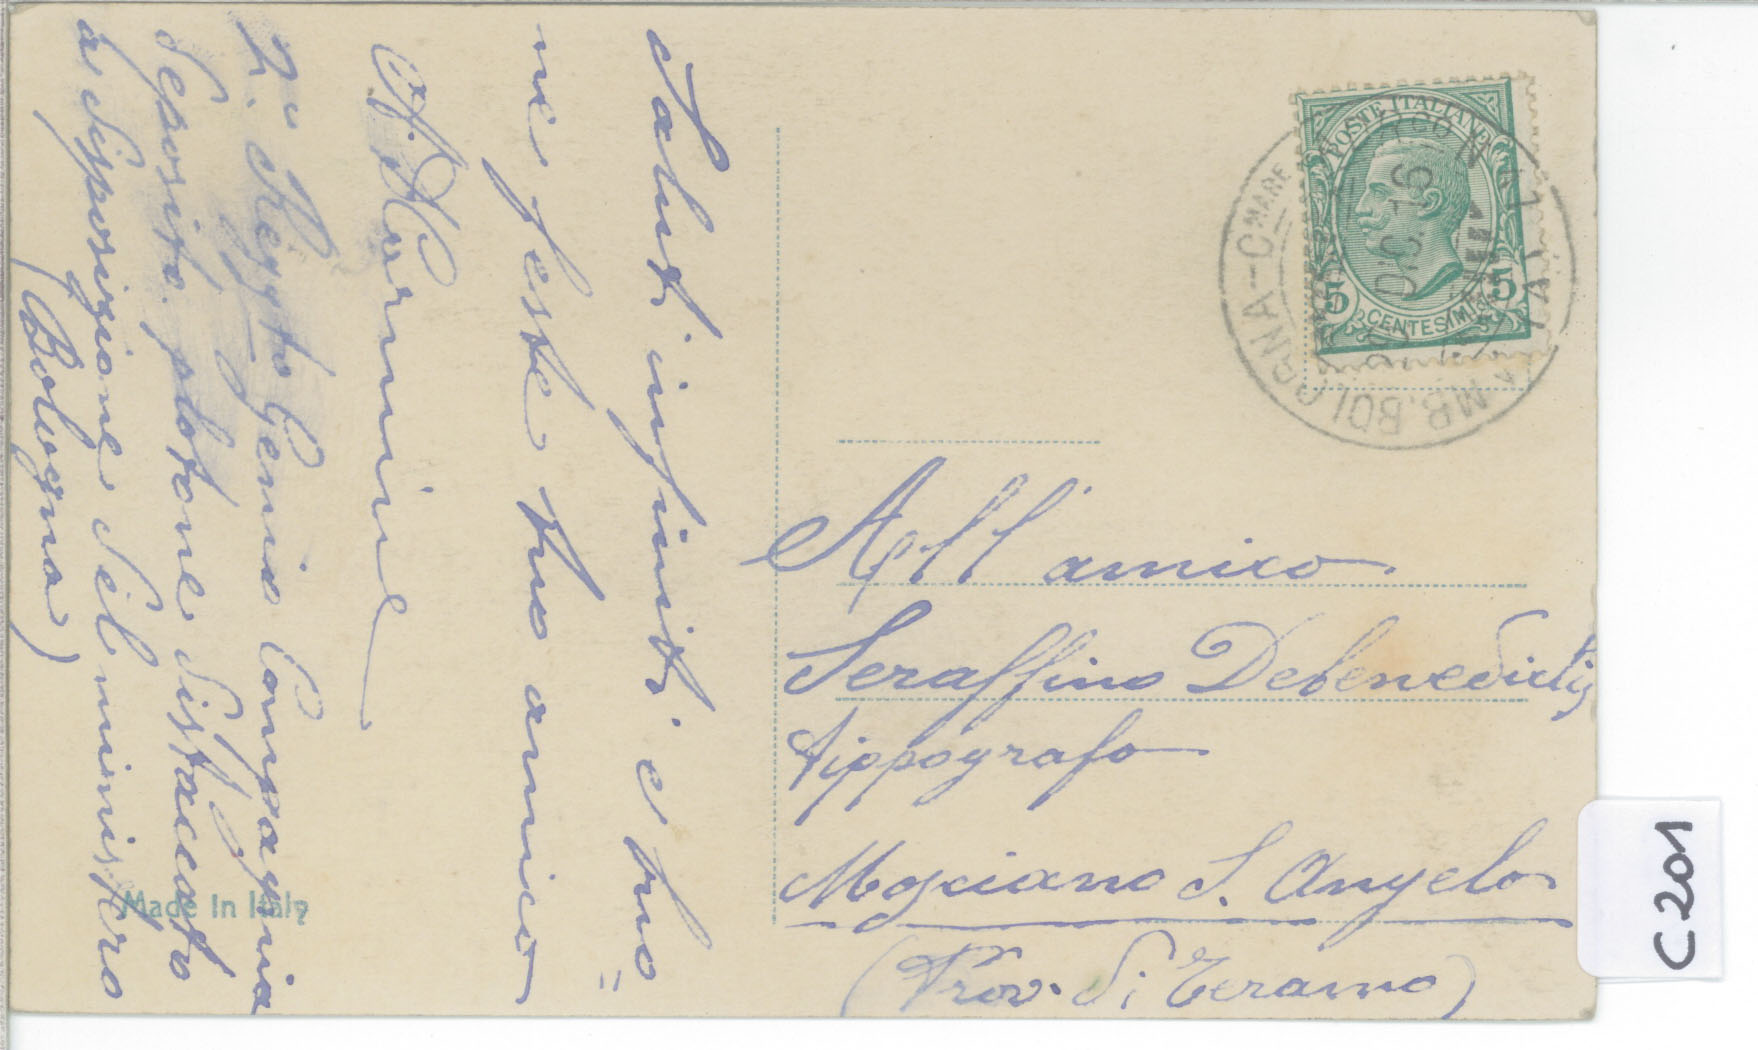 Saluti infiniti e buo=
ne feste tuo amico
A. Carmine
2° Reggto Genio Compagnia
deposito plotone distaccato
a disposizione del ministero
(Bologna)
Made In Italy
POSTE ITALIANE
5 CENTESIMI 5
AMB. BOLOGNA-CMARE
DIC. 16
All'amico
Seraffino Debenedictis
tippografo
Mosciano S. Angelo
(Prov. di Teramo)
C 201